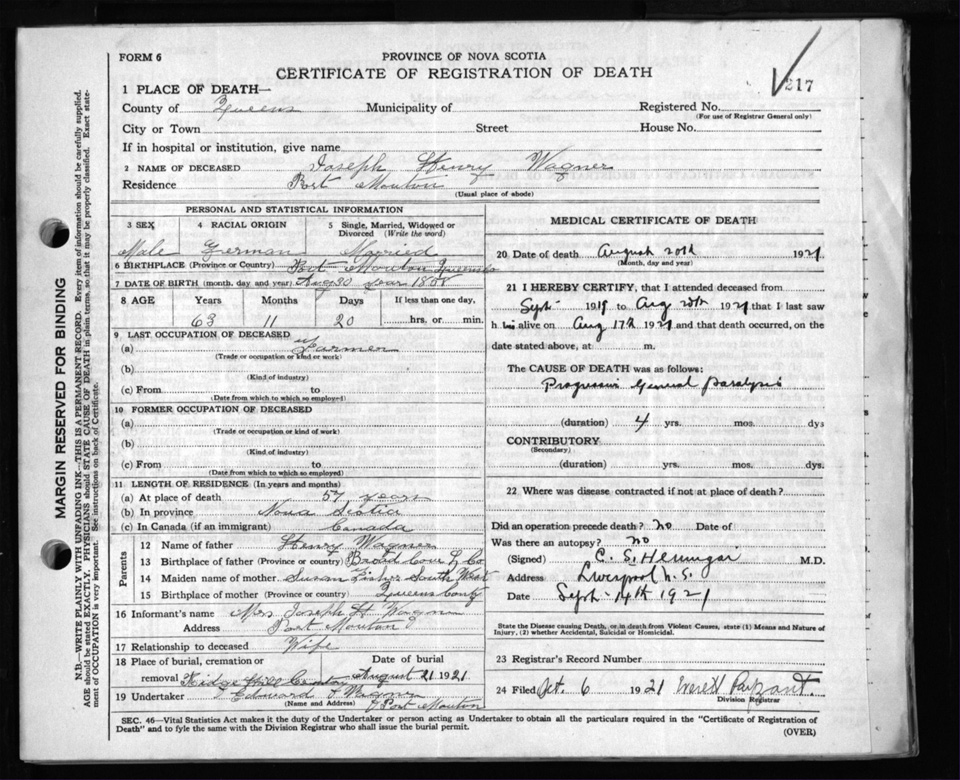 FORM 6
PROVINCE OF NOVA SCOTIA
CERTIFICATE OF REGISTRATION OF DEATH
217
1 PLACE OF DEATH—
County of Queens Municipality of Registered No.
(For use of Registrar General only)
City or Town Street House No.
If in hospital or institution, give name
2 NAME OF DECEASED Joseph Henry Wagner
Residence Port Mouton
(Usual place of abode)
PERSONAL AND STATISTICAL INFORMATION
3 SEX 4 RACIAL ORIGIN 5 Single, Married, Widowed or Divorced (Write the word)
Male German Married
6 BIRTHPLACE (Province or Country) Port Mouton Queens Co
7 DATE OF BIRTH (month, day, and year) Aug 30 year
8 AGE Years Months Days If less than one day,
63 11 20 hrs. or min.
9 LAST OCCUPATION OF DECEASED
(a) Farmer
(Trade or occupation or kind or work)
(b)
(Kind of industry)
(c) From to
(Date from which to which so employed)
10 FORMER OCCUPATION OF DECEASED
(a)
(Trade or occupation or kind of work)
(b)
(Kind of industry)
(c) From to
(Date from which to which so employed)
11 LENGTH OF RESIDENCE (In years and months)
(a) At place of death 57 years
(b) In province Nova Scotia
(c) In Canada (if an immigrant) Canada
Parents
12 Name of father Henry Wagner
13 Birthplace of father (Province or Country) Broad Cove L. Co
14 Maiden name of mother Susan Fisher South West
15 Birthplace of mother (Province or country) Queens County
16 Informant's name Mrs Joseph H Wagner
Address Port Mouton
17 Relationship to deceased Wife
18 Place of burial, cremation or removal Date of burial
August 21 1921
19 Undertaker Edward Wagner
(Name and Address) Port Mouton
MEDICAL CERTIFICATE OF DEATH
20 Date of death August 20th 1921
(Month, day and year)
21 I HEREBY CERTIFY, that I attended deceased from
Sept 1919 to Aug 20th 1921 that I last saw
h im alive on Aug 17th 1921 and that death occurred, on the
date stated above, at m.
The CAUSE OF DEATH was as follows:
Progressive General Paralysis
(duration) 4 yrs. mos. dys
CONTRIBUTORY
(Secondary)
(duration) yrs. mos. dys.
22 Where was disease contracted if not at place of death?
Did an operation precede death? no Date of
Was there an autopsy? no
(Signed) C. S. M.D.
Address Liverpool N.S.
Date Sept 14th 1921
State the Disease causing Death, or in death from Violent Causes, state (1) Means and Nature of
Injury, (2) whether Accidental, Suicidal or Homicidal.
23 Registrar's Record Number
24 Filed Oct. 6 1921 Everett
Division Registrar
SEC. 46—Vital Statistics Act makes it the duty of the Undertaker or person acting as Undertaker to obtain all the particulars required in the "Certificate of Registration of
Death" and to fyle the same with the Division Registrar who shall issue the burial permit.
(OVER)
MARGIN RESERVED FOR BINDING
N.B.—WRITE PLAINLY WITH UNFADING INK—THIS IS A PERMANENT RECORD. Every item of information should be carefully supplied.
AGE should be stated EXACTLY. PHYSICIANS should STATE CAUSE OF DEATH in plain terms, so that it may be properly classified. Exact state-
ment of OCCUPATION is very important. See instructions on back of Certificate.